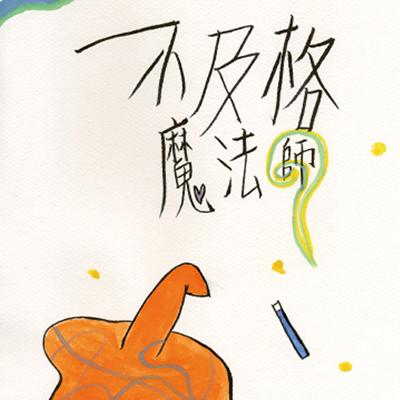 不及格
魔法師